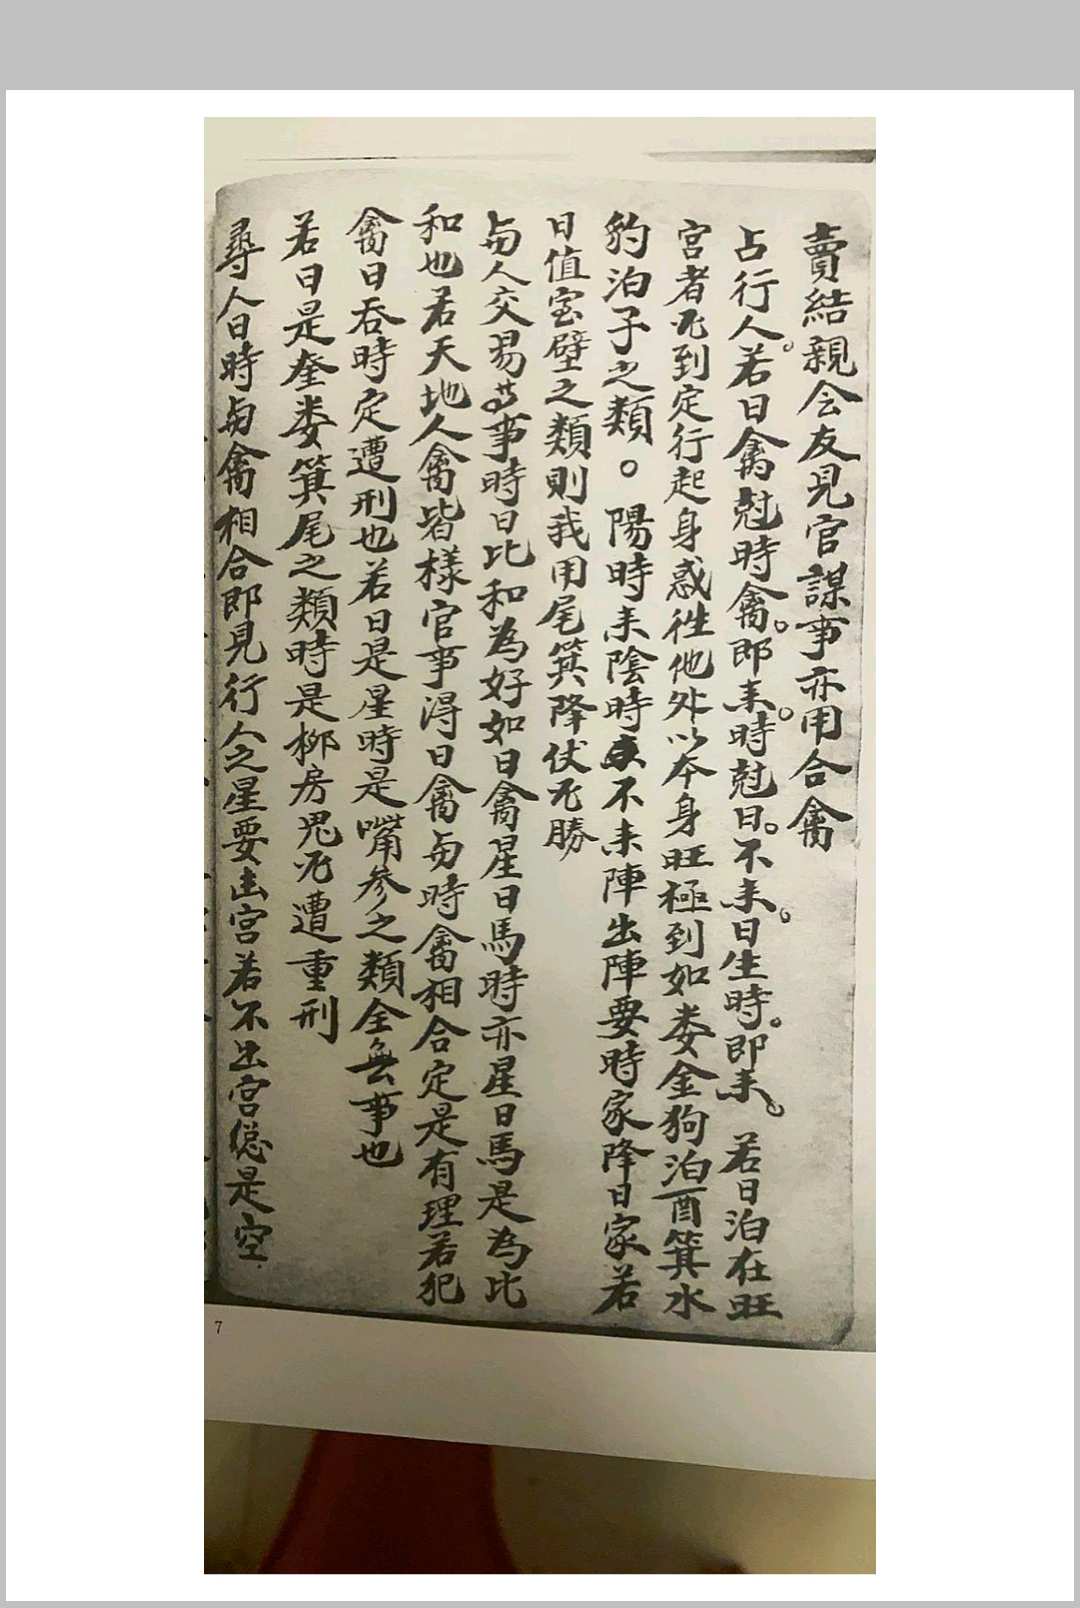 賣結親会友見官謀事亦用合禽
占行人。若日禽尅時禽。即来。時尅日。不来。日生時。即来。若日泊在旺
宮者旡到定行起身惑徃他外以夲身旺極到如娄金狗泊酉箕水
豹泊子之類。陽時来陰時不来陣出陣要時家降日家若
日值室壁之類則我用尾箕降伏旡勝
与人交易䒭事時日比和為好如日禽星日馬時亦星日馬是為比
和也若天地人禽皆様官事得日禽与時禽相合定是有理若犯
禽日吞時定遭刑也若日是星時是嘴参之類全無事也
若日是奎娄箕尾之類時是柳房鬼旡遭重刑
尋人日時与禽相合即見行人之星要出宮若不出宮総是空
7